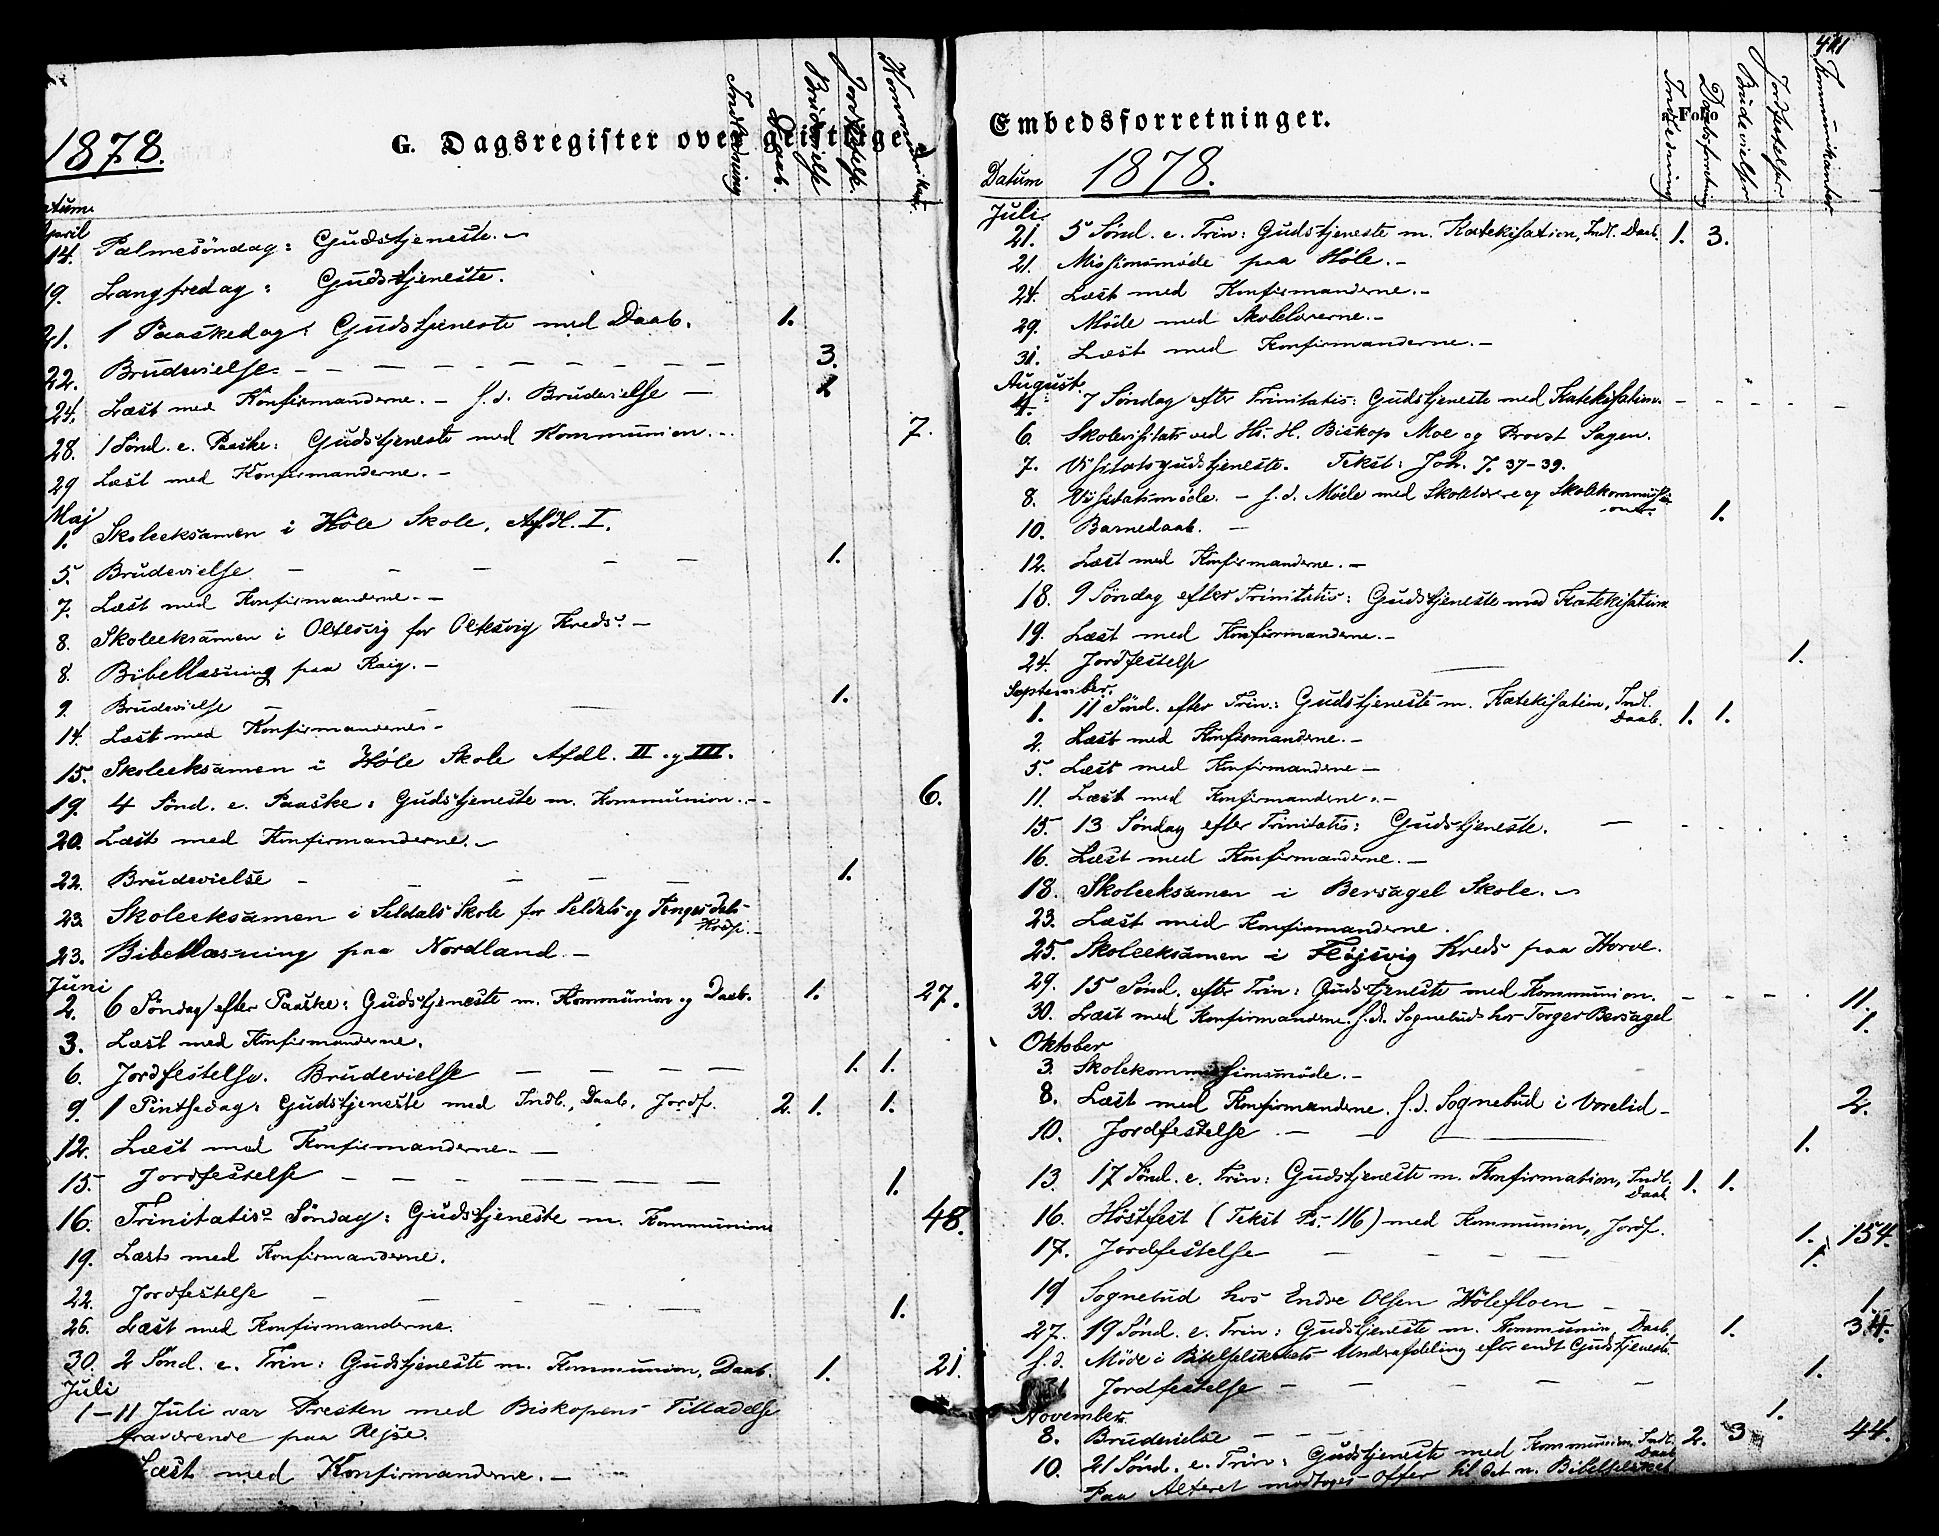 1878.
G. Dagsregister over geistlige
Indledning
Daab.
Brudevielse
Jordfæstelse.
April
14. Palmesöndag: Gudstjeneste. –
19. Langfredag: Gudstjeneste.
21. 1 Paaskedag: Gudstjeneste med Daab. 1.
22. Brudevielse. – – – – – – – – 3.
24. Læst med Konfirmanderne. – S. d. Brudevielse – 1
28. 1 Sönd. e. Paaske: Gudstjeneste med Kommunion. – 7.
29 Læst med Konfirmanderne. –
Maj
1. Skoleeksamen i Höle Skole, Afdl. I.
5. Brudevielse – – – – – 1.
7. Læst med Konfirmanderne. –
8. Skoleeksamen i Oltesvig for Oltesvig Kreds. –
8. Bibellæsning paa Raig. –
9. Brudevielse – – – 1.
14. Læst med Konfirmanderne –
15. Skoleeksamen i Höle Skole Afdl. II og III.
19. 4 Sönd. e. Paaske: Gudstjeneste m. Kommunion. – – 6.
20. Læst med Konfirmanderne. –
22. Brudevielse – – – – – 1.
23. Skoleeksamen i Seldals Skole for Seldals og Tengesdals-
Kreds. –
23. Bibellæsning paa Nordland –
Juni
2. 6 Söndag efter Paaske: Gudstjeneste m. Kommunion og Daab. 1. 27.
3. Læst med Konfirmanderne.
6. Jordfestelse. Brudevielse – – – – 1. 1.
9. 1 Pintsedag: Gudstjeneste med Indl., Daab, Jordf. 2. 1. 1.
12. Læst med Konfirmanderne. –
15. Jordfestelse – – – – – – – 1.
16. Trinitatis Söndag: Gudstjeneste m. Kommunion 48.
19. Læst med Konfirmanderne.
22. Jordfestelse – – – – – 1.
26. Læst med Konfirmanderne.
30. 2 Sönd. e. Trin: Gudstjeneste m. Kommunion, Daab. 1. 21.
Juli
1–11 Juli var Presten med Biskopens Tilladelse
fraværende paa Rejse.
Læst med Konfirmanderne. –
441
Embedsforretninger.
Folio
Datum 1878.
Indledning
Brudevielser
Jordfæstelser
Kommunikanter
Juli.
21. 5 Sönd. e. Trin: Gudstjeneste m. Katekisation, Indl. Daab. 1. 3.
21. Missionsmöde paa Höle. –
24. Læst med Konfirmanderne. –
29. Möde med Skolelærerne. –
31. Læst med Konfirmanderne. –
August.
4. 7 Söndag efter Trinitatis: Gudstjeneste med Katekisation. – – – – –
6. Skolevisitats ved Hs. H. Biskop Moe og Provst Sagen.
7. Visitatsgudstjeneste. Tekst: Joh. 7. 37–39.
8. Visitatsmöde. – S. d. Möde med Skolelærere og Skolekommissi-
onen.
10. Barnedaab. – 1.
12. Læst med Konfirmanderne. –
18. 9 Söndag efter Trinitatis: Gudstjeneste med Katekisation
19. Læst med Konfirmanderne. –
24. Jordfestelse – 1.
September.
1. 11 Sönd. efter Trin.: Gudstjeneste m. Katekisation, Indl.
Daab. 1. 1.
2. Læst med Konfirmanderne. –
5. Læst med Konfirmanderne –
11. Læst med Konfirmanderne. –
15. 13 Söndag efter Trinitatis: Gudstjeneste. – – – – –
16. Læst med Konfirmanderne. –
18. Skoleeksamen i Bersagel Skole. –
23. Læst med Konfirmanderne.
25. Skoleeksamen i Fløjsvig Kreds paa Horve.
29. 15 Sönd. efter Trin: Gudstjeneste med Kommunion. – – – – 11.
30. Læst med Konfirmanderne. S. d. Sognebud hos Torger Bersagel 1.
Oktober
3. Skolekommissionsmöde. –
8. Læst med Konfirmanderne. S. d. Sognebud i Vorelid – 2.
10. Jordfestelse – – – 1.
13. 17 Sönd. e. Trin: Gudstjeneste m. Konfirmation, Indl.
Daab 1. 1.
16. Höstfest (Tekst Ps. 116) med Kommunion, Jordf. 1. 154.
17. Jordfestelse – – – – 1.
19 Sognebud hos Endre Olsen Hölefloen – – 1.
27. 19 Sönd. e. Trin: Gudstjeneste m. Kommunion, Daab. 1. 34.
S. d. Möde i Bibelselskabets Underafdeling efter endt Gudstjeneste.
31 Jordfestelse – – – – – 1.
November.
8. Brudevielse – – – 1.
10. 21 Sönd. e. Trin: Gudstjeneste med Kommunion, Indl.
Daab 2. 3 44.
Paa Alteret modtoges Offer til det n. Bibelselskab